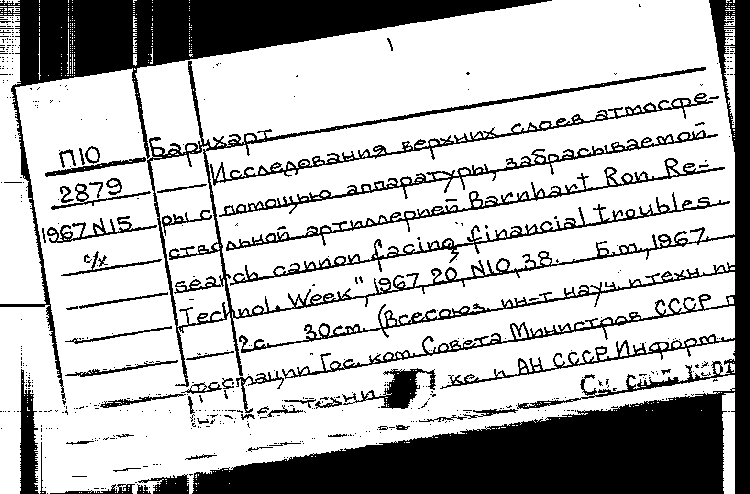 П10
2879
1967 N15
с/х
Барнхарт
Исследования верхних слоев атмосфе-
ры с помощью аппаратуры, забрасываемой
ствольной артиллерией Barnhart Ron. Re-
search cannon facing financial troubles.
Technol. Week", 1967, 20, N10, 38. Б.м., 1967.
2с. 30см. (Всесоюз. ин-т науч. и техн. ин
формации Гос. ком. Совета Министров СССР п
ке. и АН СССР. Информ.
техни
См. след.